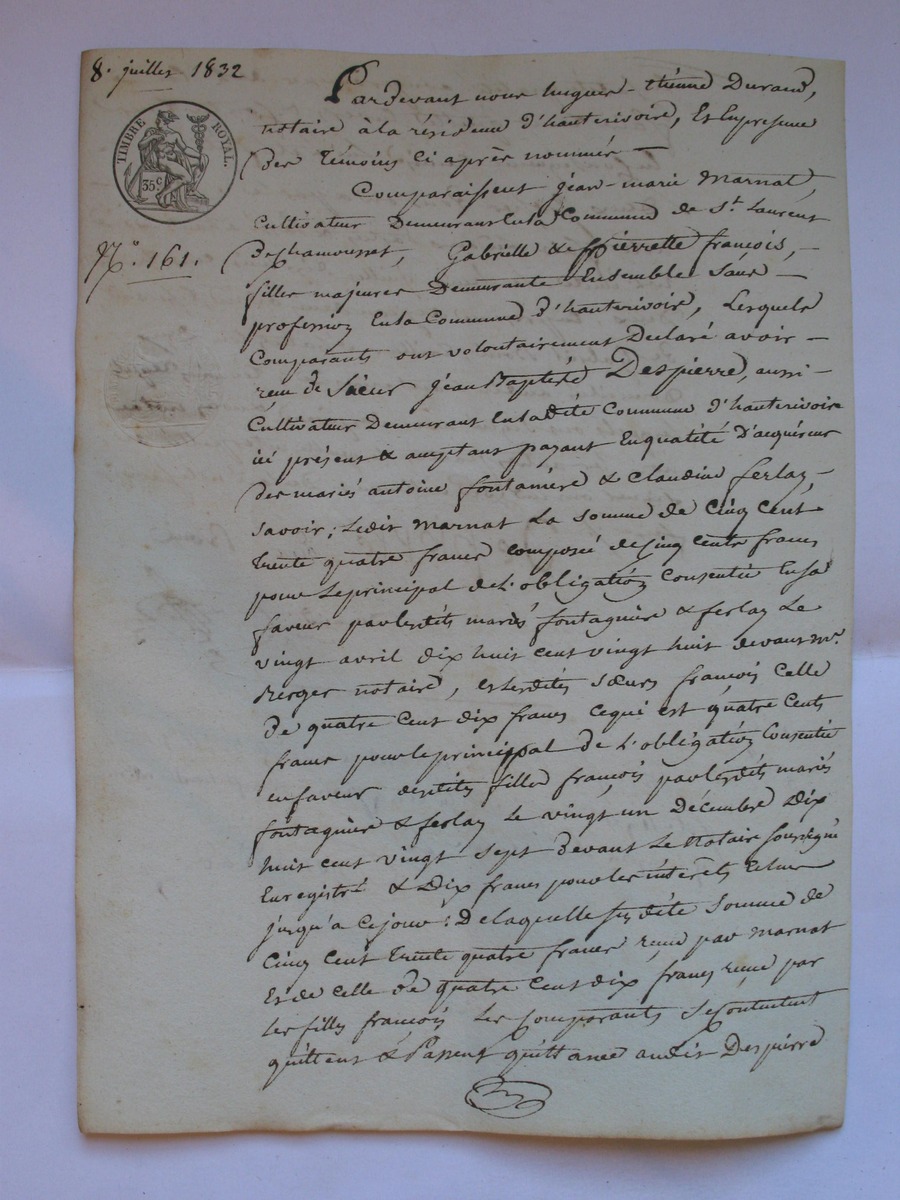 8. juillet 1832
TIMBRE ROYAL.
35 c
N.° 161.
Pardevant nous hugues-étienne Durand,
notaire à la résidence d'hauterivoire, Et En présence
Des témoins Ci après nommés —
Comparaissent jean-marie Marnat,
Cultivateur Demeurant En la Commune de St. Laurent
De Chamousset, Gabrielle & pierrette françois, —
filles majeures Demeurante Ensemble Sans —
profession En la Commune D'hauterivoir, Lesquels
Comparants ont volontairement Déclaré avoir —
reçu de Sieur jean Baptiste Despierre, aussi —
Cultivateur Demeurant En la dite Commune d'hauterivoire
ici présent & acceptant payant En qualité D'acquéreur
des mariés antoine fontanière & Claudine ferlay —
Savoir; Ledit Marnat La somme de Cinq Cent
trente quatre francs Composée de Cinq Cents francs
pour Le principal de L'obligation Consentie En sa
faveur par les dits mariés fontagnière & ferlay Le
vingt avril dix huit cent vingt huit devant Me.
Berger notaire, et les dites Sœurs françois Celle
de quatre Cent dix francs Ce qui est quatre Cents
francs pour le principal de L'obligation Consentie
en faveur desdites filles françois par les dits mariés
fontagnière & ferlay Le vingt un Décembre Dix
huit cent vingt sept devant Le Notaire Soussigné
Enregistré & Dix francs pour les intérêts Echus
jusqu'a Ce jour: De laquelle susdite Somme de
Cinq Cent Trente quatre francs reçue par Marnat
Et de Celle de quatre Cent dix francs reçue par
Les filles françois Les Comparants Se Contentent
quittent & Passent quittance audit Despierre